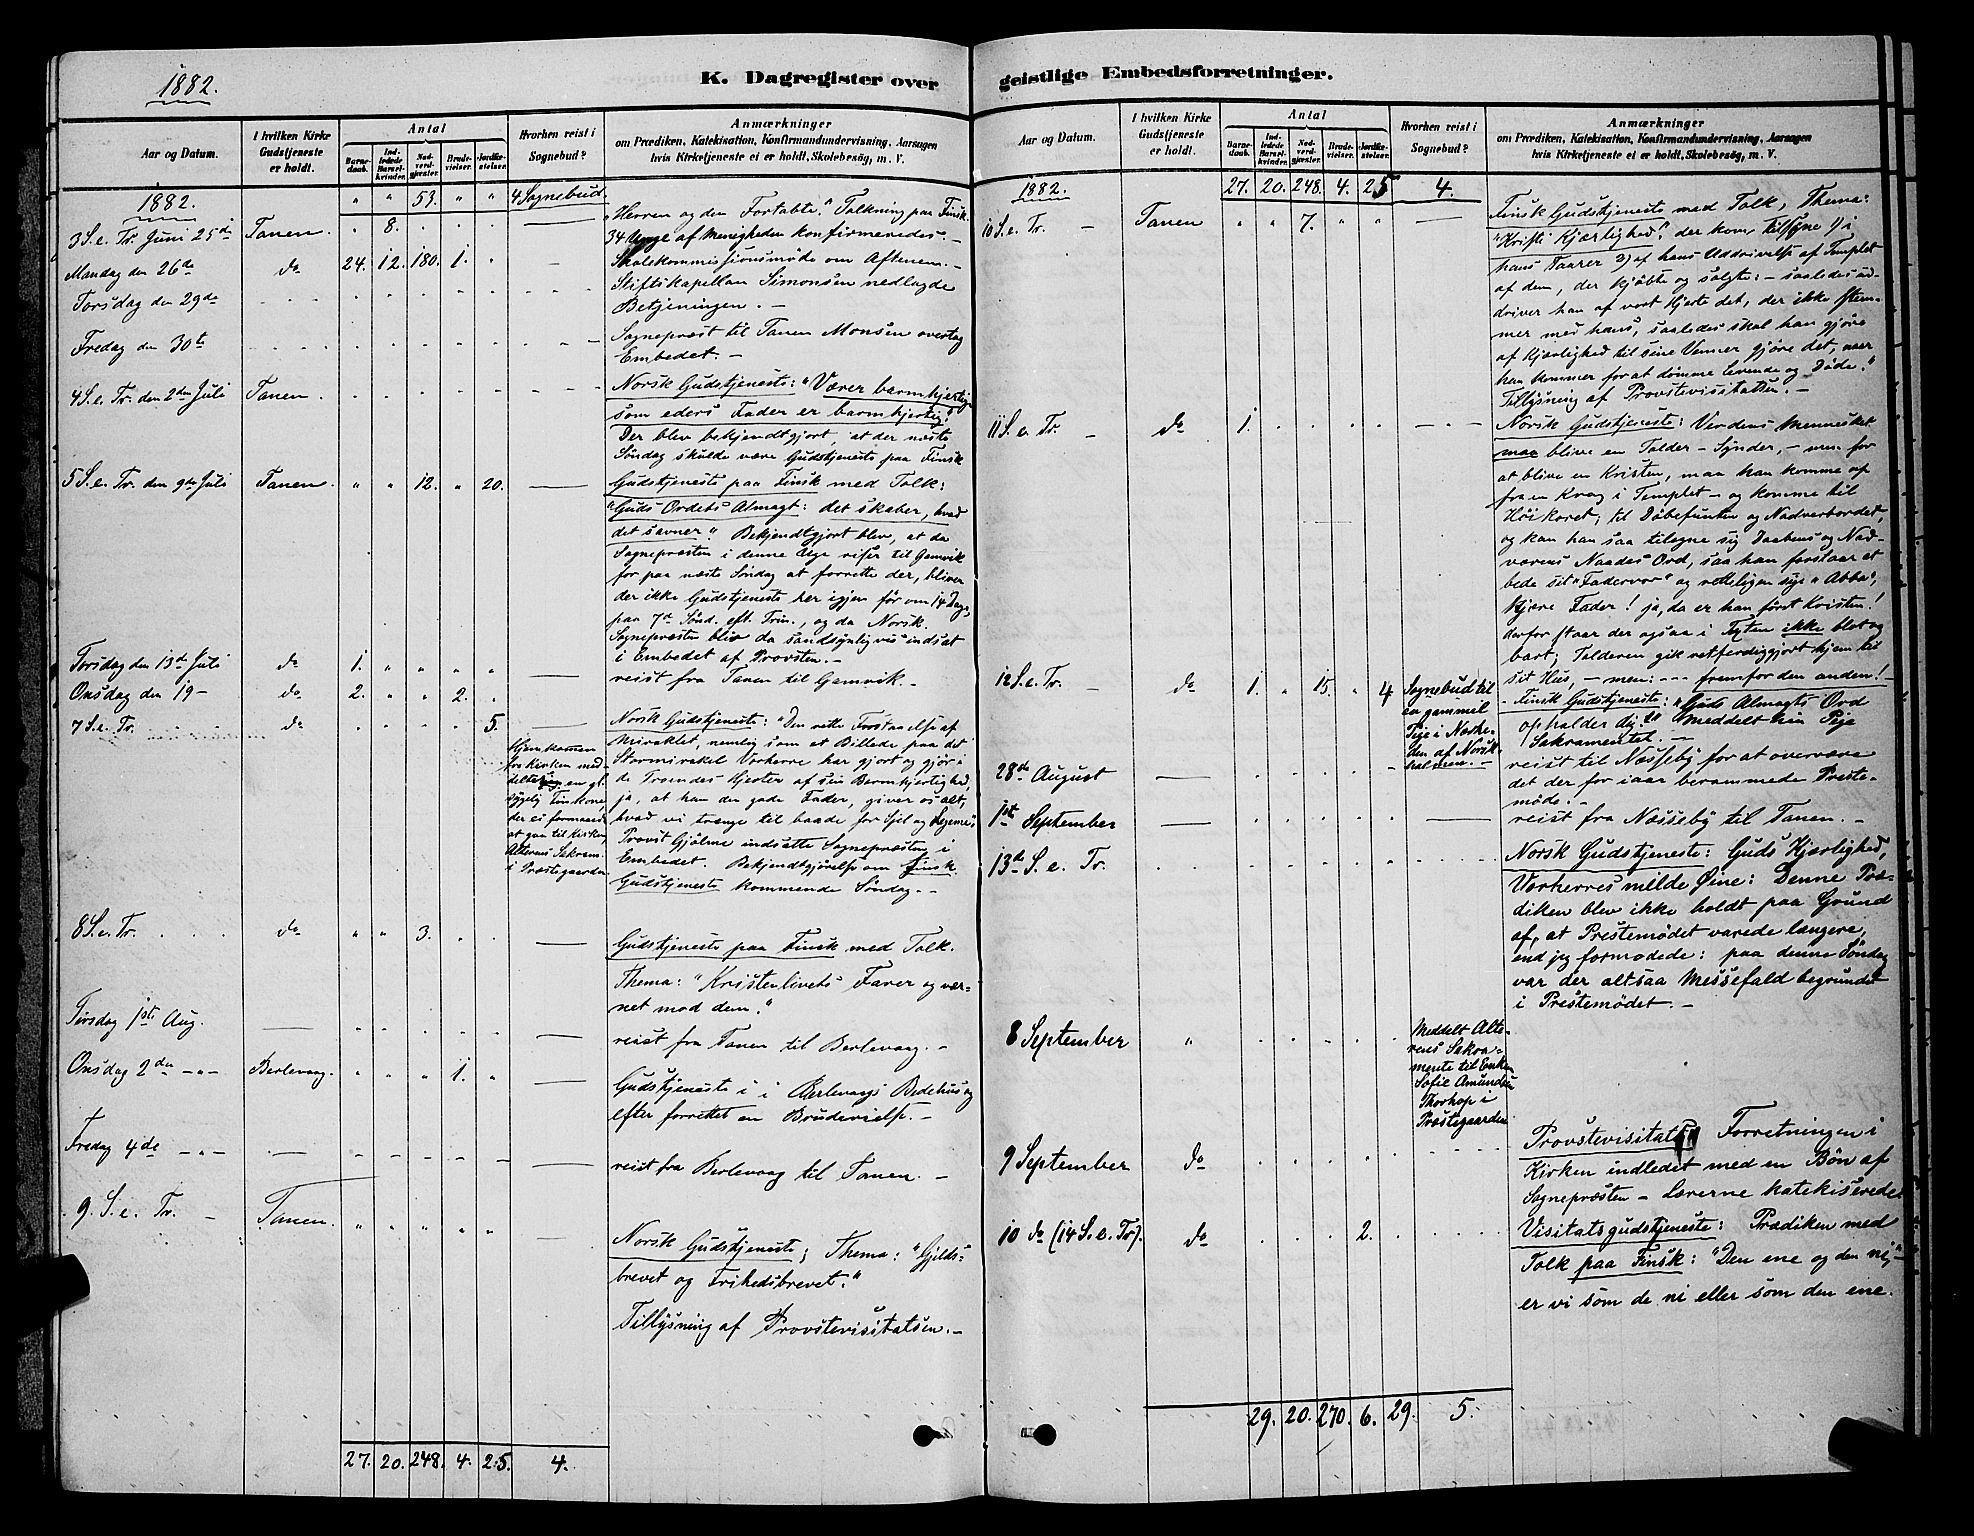 1882.
K. Dagregister over
Aar og Datum.
I hvilken Kirke Gudstjeneste er holdt.
Antal
Barne-daab.
Ind-ledede Barsel-kvinder.
Nad-verd-gjæster.
Brude-vielser.
Jordfæ-stelser.
Hvorhen reist i Sognebud?
Anmærkninger
om Prædiken, Katekisation, Konfirmandundervisning, Aarsagen
hvis Kirketjeneste ei er holdt, Skolebesøg, m. V.
1882. " " 53. " " 4 Sognebud.
3 S. e. Tr. Juni 25de Tanen. 8. "Herren og den Fortabte." Tolkning paa Finsk.
34 Unge af Menigheden konfirmeredes. –
Mandag den 26de do 24. 12. 180. 1. Skolekommissionsmøde om Aftenen. –
Torsdag den 29de Stiftskapellan Simonsen nedlagde
Betjeningen. –
Fredag den 30te Sognepræst til Tanen Monsen overtog
Embedet. –
4 S. e. Tr. den 2den Juli Tanen. Norsk Gudstjeneste: "Værer barmhjertige
som eders Fader er barmhjertig."
Der blev bekjendtgjort, at der næste
Søndag skulde være Gudstjeneste paa Finsk
5 S. e. Tr. den 9de Juli Tanen. " " 12. " 20. Gudstjeneste paa Finsk med Tolk:
"Guds Ordets Almagt: det skaber, hvad
det savner." Bekjendtgjort blev, at da
Sognepræsten i denne Uge reiser til Gamvik
for paa næste Søndag at forrette der, bliver
der ikke Gudstjeneste her igjen før om 14 Dage,
paa 7de Sønd. eft. Trin., og da Norsk.
Sognepræsten bliv da sandsynligvis indsat
i Embedet af Provsten. –
Torsdag den 13de Juli do 1. " " " " reist fra Tanen til Gamvik. –
Onsdag den 19 – do 2. " " 2.
7 S. e. Tr. do 5. Norsk Gudstjeneste: "Den rette Forstaaelse af
Miraklet, nemlig som et Billede paa det
Stormirakel Vorherre har gjort og gjør i
de Troendes Hjerter af sin Barmhjertighed,
ja, at han den gode Fader, giver os alt,
hvad vi trænge til baade for Sjel og Legeme."
Provst Gjølme indsatte Sognepræsten i
Embedet. Bekjendtgjørelse om Finsk
Gudstjeneste kommende Søndag. –
Hjemkommen
fra Kirken med-
delte en gl.
sygelig Finkone,
der ei formaaede
at gaa til Kirken,
Alterens Sakram.
i Præstegaarden
8 S. e. Tr. do " " 3. Gudstjeneste paa Finsk med Tolk.
Thema: "Kristenlivets Farer og vær-
net mod dem."
Tirsdag 1ste Aug. reist fra Tanen til Berlevaag. –
Onsdag 2den –"– Berlevaag. " " " 1. " Gudstjeneste i i Berlevaags Bedehus og
efter forrettet en Brudevielse. –
Fredag 4de –"– reist fra Berlevaag til Tanen. –
9. S. e. Tr. – Tanen. " " " " " Norsk Gudstjeneste; Thema: "Gjelds-
brevet og Frihedsbrevet."
Tillysning af Provstevisitatsen. –
27. 20. 248. 4. 25. 4.
geistlige Embedsforretninger.
Aar og Datum.
I hvilken Kirke Gudstjeneste er holdt.
Antal
Barne-daab.
Ind-ledede Barsel-kvinder.
Nad-verd-gjæster.
Brude-vielser.
Jordfæ-stelser.
Hvorhen reist i Sognebud?
Anmærkninger
om Prædiken, Katekisation, Konfirmandundervisning, Aarsagen
hvis Kirketjeneste ei er holdt, Skolebesøg, m. V.
1882. 27. 20. 248. 4. 25 4.
10 S. e. Tr. – Tanen " " 7. " " Finsk Gudstjeneste med Tolk, Thema:
"Kristi Kjærlighed," der kom til Syne 1) i
hans Taarer 2) af hans Uddrivelse af Templet
af dem, der kjøbte og solgte: – saaledes ud-
driver han af vort Hjerte det, der ikke stem-
mer med hans, saaledes skal han gjøre
af Kjærlighed til sine Venner gjøre det, naar
han kommer for at dømme levende og Døde."
Tillysning af Provstevisitatsen. –
11 S. e. Tr. – do 1. Norsk Gudstjeneste: Verdens Mennesket
maa blive en Tolder – Synder, – men for
at blive en Kristen, maa han komme op
fra en Krog i Templet – og komme til
Høikoret, til Døbefunten og Nadverbordet,
og kan han saa tilegne sig Daabens og Nad-
værens Naades Ord, saa han forstaar at
bede sit "Fadervor" og retteligen sige "Abba",
kjære Fader! ja, da er han først Kristen!
derfor staar der ogsaa i Texten ikke blot og
bart; Tolderen gik retferdiggjort hjem til
sit Hus, – men: --- fremfor den anden!
12 S. e. Tr. – do 1. " 15. " 4 – Finsk Gudstjeneste: "Guds Almagts Ord
opholder dig." Meddelt hin Pige
Sakramentet. –
Sognebud til
en gammel
Pige i
af Norsk-
holmen. –
28de August reist til Næsseby for at overvære
det der for iaar berammede Preste-
møde. –
1ste September reist fra Næsseby til Tanen. –
13de S. e. Tr. Norsk Gudstjeneste: Guds Kjærlighed,
Vorherres milde Øine: Denne Præ-
diken blev ikke holdt paa Grund
af, at Prestemødet varede længere,
end jeg formodede: paa denne Søndag
var der altsaa Messefald begrundet
i Prestemødet. –
8 September " Meddelt Alte-
rens Sakra-
mente til Enken
Sofie Amundsen
Thorhop i
Præstegaarden
9 September do Provstevisitats Forretningen i
Kirken indledet med en Bøn af
Sognepræsten – Lærerne katekiserede
10 do (14 S. e. Tr). do 2. Visitatsgudstjeneste: Prædiken med
Tolk paa Finsk: "Den ene og den ni," –
er vi som de ni eller som den ene.
29. 20. 270. 6. 29. 5.